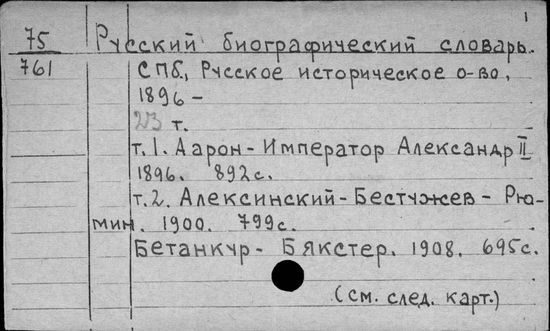 1
75 Русский биографический словарь.
761 СПб., Русское историческое о-во,
1896 –
23 т.
т.1. Аарон - Император Александр II
1896. 892 с.
т.2. Алексинский - Бестужев - Рю-
мин. 1900. 799 с.
Бетанкур - Бякстер. 1908. 695 с.
(см. след. карт.)